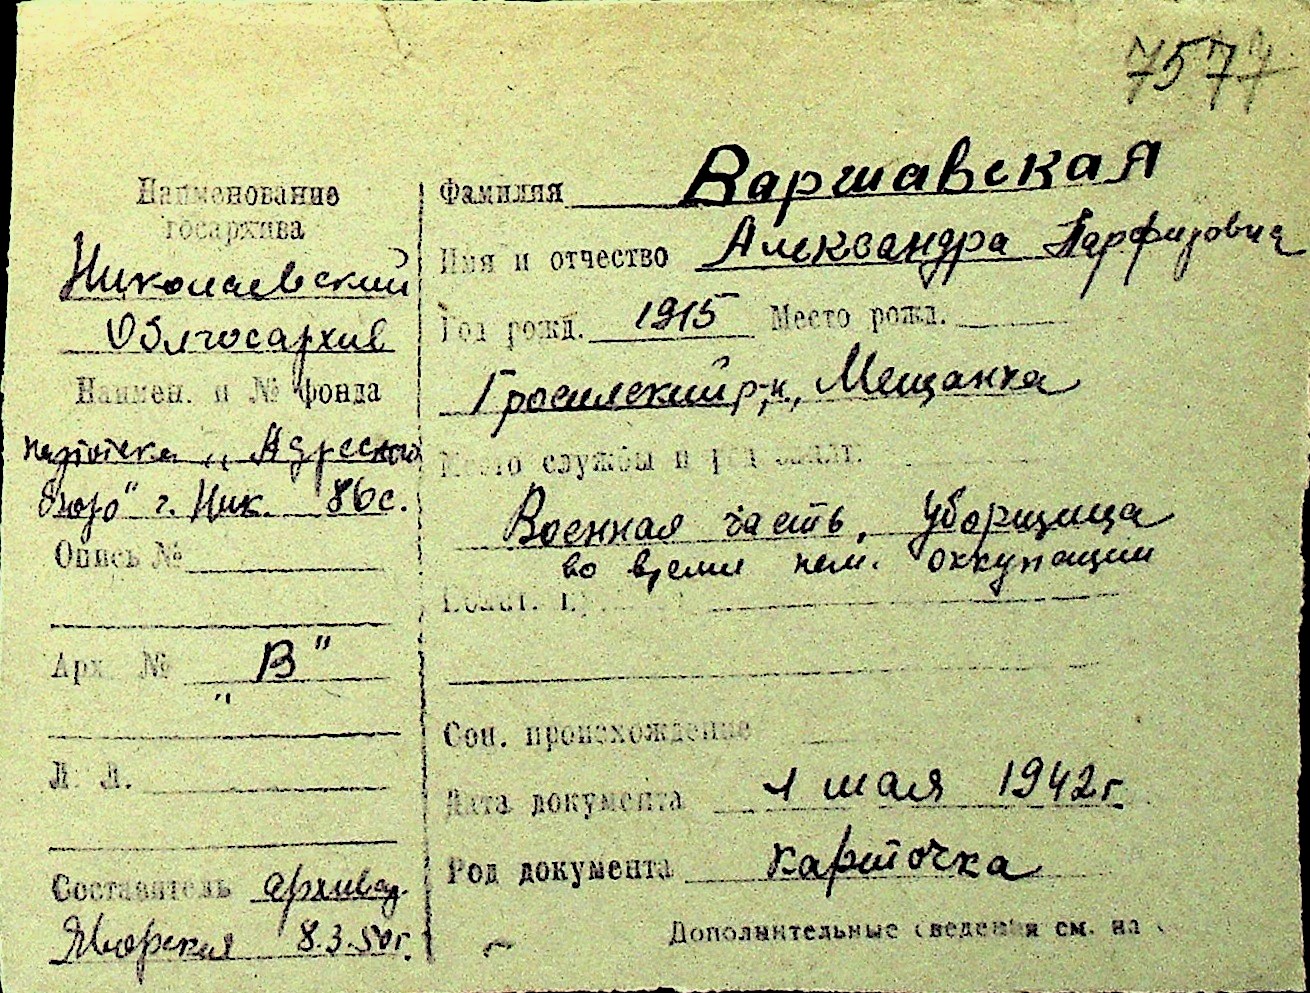 7577
Наименование
госархива
Николаевский
Облгосархив
Наимен. и № фонда
картотека „Адресное
бюро" г. Ник. 86с.
Опись №
Арх. №  „В"
Л. Л.
Составитель архивад.
Яворская 8.3.50г.
Фамилия Варшавская
Имя и отчество Александра Парфировна
Год рожд. 1915 Место рожд.
р-н, Мещанка
Место службы и род занят.
Военная часть, уборщица
во время нем. оккупации
Соц. происхождение
Дата документа 1 мая 1942г.
Род документа карточка
Дополнительные сведения см. на